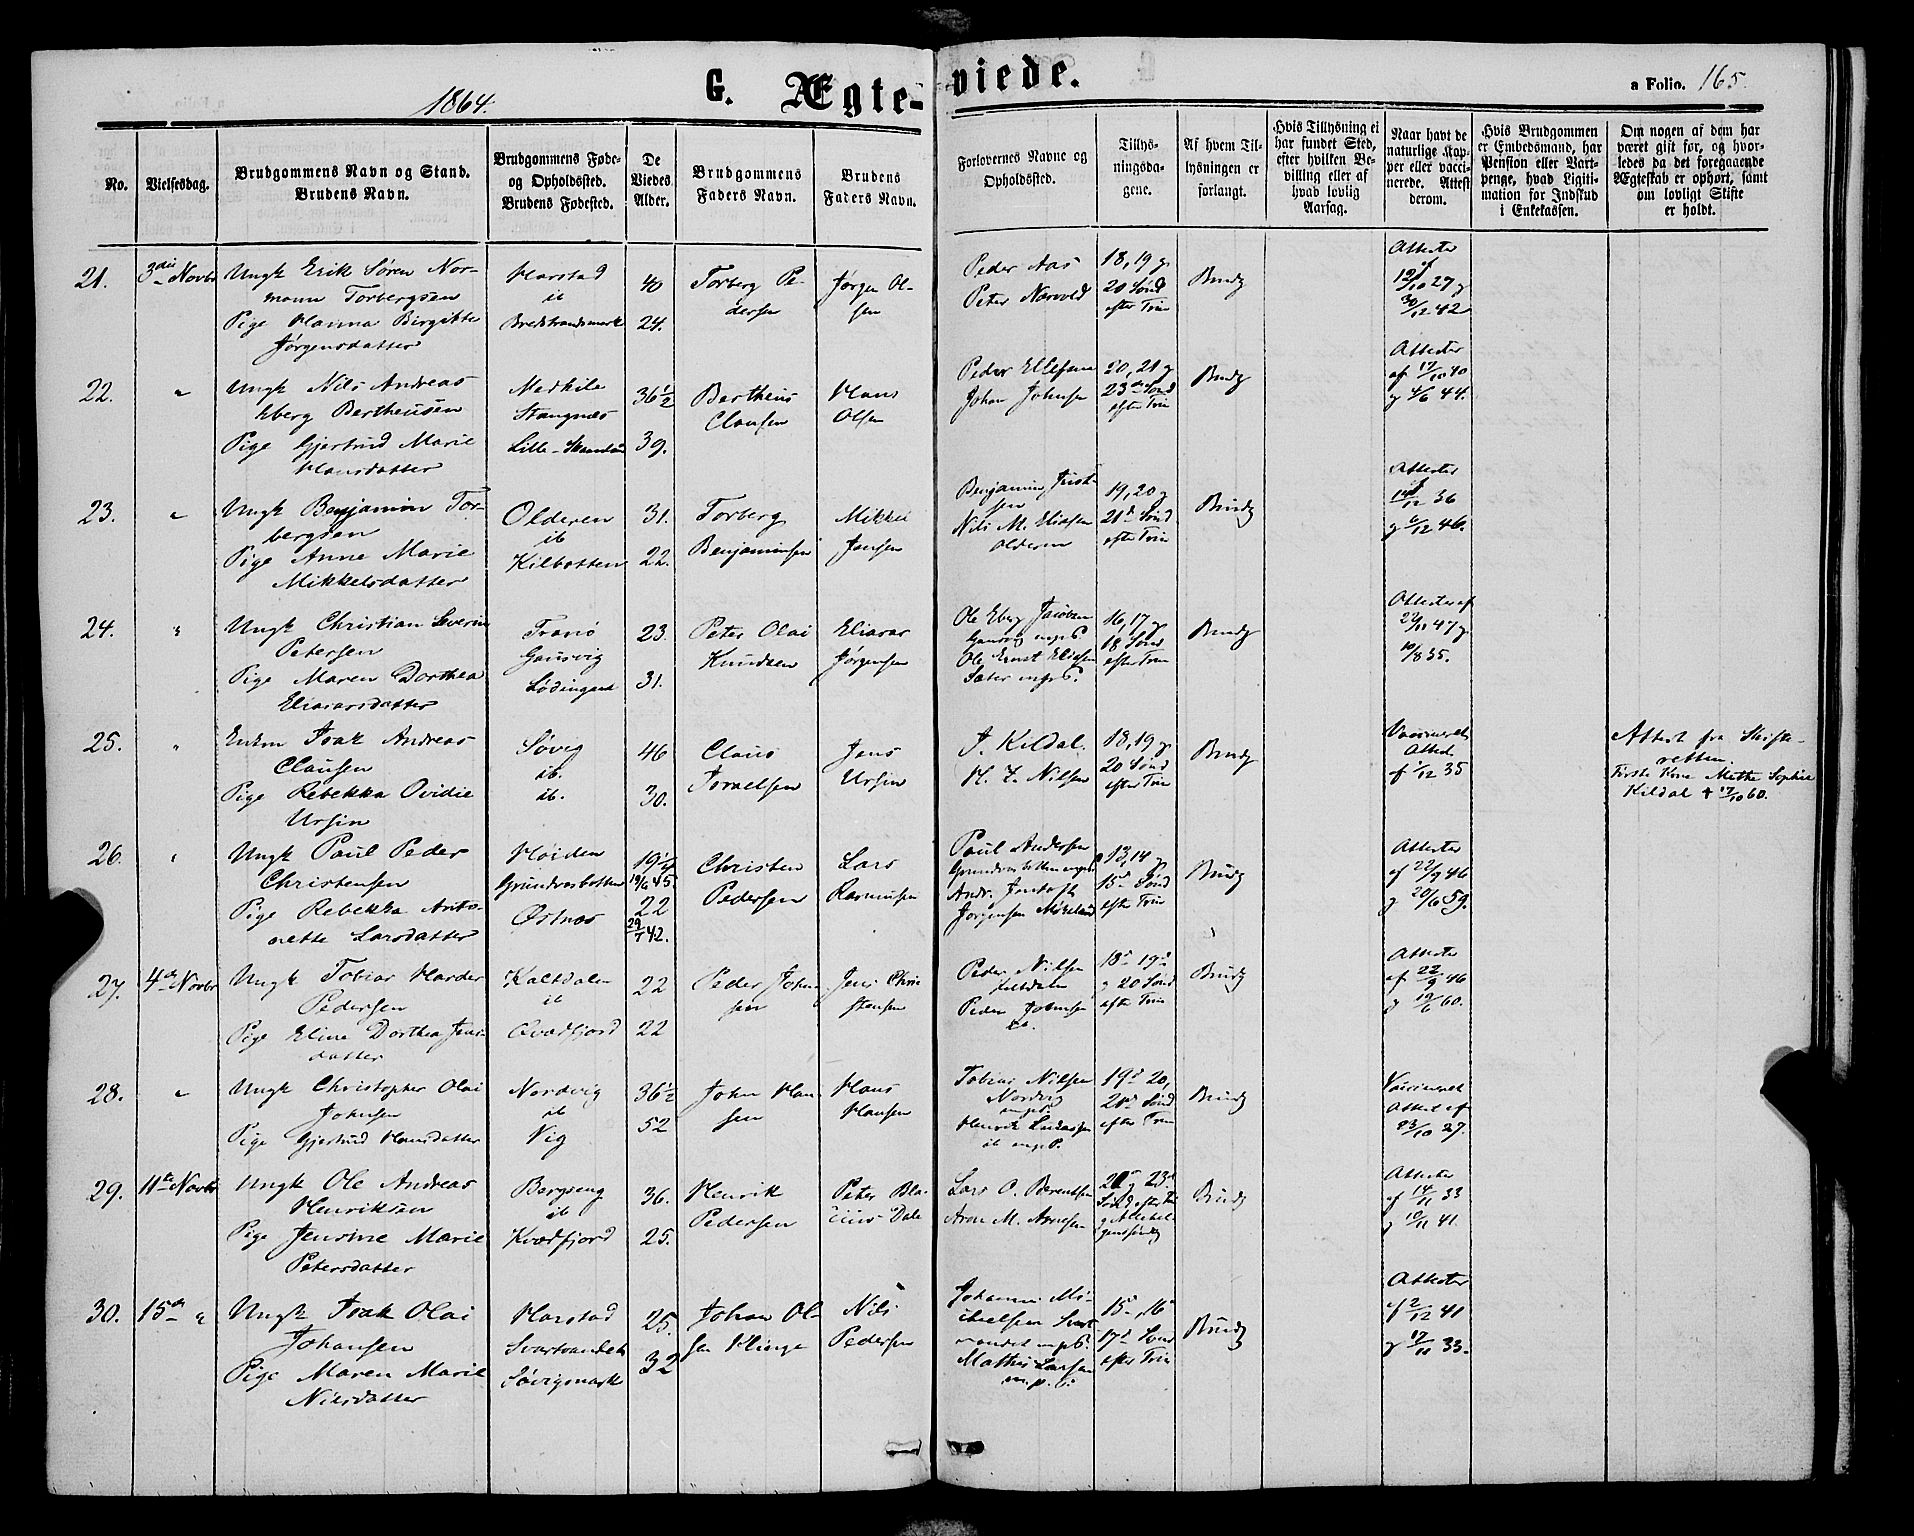 1864.
G. Ægteviede.
a Folio. 165.
No.
Vielsesdag.
Brudgommens Navn og Stand.
Brudens Navn.
Brudgommens Føde-
og Opholdssted.
Brudens Fødested.
De
Viedes
Alder.
Brudgommens
Faders Navn.
Brudens
Faders Navn.
Forlovernes Navne og
Opholdssted.
Tillys-
ningsda-
gene.
Af hvem Til-
lysningen er
forlangt.
Hvis Tillysning ei
har fundet Sted,
efter hvilken Be-
villing eller af
hvad lovlig
Aarsag.
Naar havt de
naturlige Kop-
per eller vacci-
nerede. Attest
derom.
Hvis Brudgommen
er Embedsmand, har
Pension eller Vart-
penge, hvad Ligiti-
mation for Indskud
i Enkekassen.
Om nogen af dem har
været gift før, og hvor-
ledes da det foregaaende
Ægteskab er ophørt, samt
om lovligt Skifte
er holdt.
21.
3die Novbr
Ungk Erik Søren Nor-
mann Torbergsen
Pige Hanna Birgitte
Jørgensdatter
Harstad
ib
Bredstrandsmark
40
24.
Torberg Pe-
dersen
Jørgen Ol-
sen
Peder Aas
Peter Norvold
18, 19 g
20 Sønd
efter Trin
Brudg
Attester
af
12/10 27 g
30/12 42
22.
"
Ungk Nils Andreas
Eberg Bertheusen
Pige Gjertrud Marie
Hansdatter
Medkile
Stangnæs
Lille-Skaanland
36½
39.
Bertheus
Clausen
Hans
Olsen
Peder Ellefsen
Johan Johnsen
20, 21 g
23de Sønd
efter Trin
Brudg
Attester
af 17/10 40
g 4/6 44.
23.
"
Ungk Benjamin Tor-
bergsen
Pige Anne Marie
Mikkelsdatter
Olderen
ib
Kilbotten
31.
22.
Torberg
Benjaminsen
Mikkel
Jensen
Benjamin Just-
sen
Nils M. Eliasen
Olderen
19, 20 g
21d Sønd
efter Trin
Brudg
Attester
af
14/12 36
g 6/12 46.
24.
"
Ungk Christian Severin
Petersen
Pige Maren Dorthea
Eliasarsdatter
Tranø
Gausvig
Lødingen
23.
31.
Peter Olai
Knudsen
Eliasar
Jørgensen
Ole Eberg Jacobsen
Gausvig mpP.
Ole Ernst Eliasen
Sæter mpP.
16, 17 g
18 Sønd
efter Trin
Brudg
Attester af
22/11 47 g
10/8 35.
25.
"
Enkm Isak Andreas
Clausen
Pige Rebekka Ovidie
Ursin
Søvig
ib.
ib.
46
30.
Claus
Israelsen
Jens
Ursin
J. Kildal.
H. J. Nilsen
18, 19 g
20 Sønd
efter Trin
Brudg
Vaccineret
Attest
af 1/12 35
Attest fra Skifte-
retten.
Første Kone Methe Sophie
Kildal † 17/10 60.
26.
"
Ungk Paul Peder
Christensen
Pige Rebekka Anto-
nette Larsdatter
Høiden
Grundvasbotten
Østnæs
19¼
19/6 45.
22
29/7 42.
Christen
Pedersen
Lars
Rasmusen
Paul Andersen
Andr. Justoft
Jørgensen Møkeland
13, 14 g
15d Sønd
efter Trin
Brudg
Attester
af 22/9 46
g 20/6 59.
27.
4de Novbr
Ungk Tobias Harder
Pedersen
Pige Eline Dorthea Jens-
datter
Kaltdalen
ib
Qvædfjord
22
22
Peder John-
sen
Jens Chri-
stensen
Peder Nilsen
Peder Johnsen
18d 19d
g 20 Sønd
efter Trin
Brudg
Attester
af 22/9 46
g 19/6 60.
28.
"
Ungk Christopher Olai
Johnsen
Pige Gjertrud Hansdatter
Nordvig
ib
Vig
36½
52
John Han-
sen
Hans
Hansen
Tobias Nilsen
Nordvig
mpP.
Henrik Lukassen
ib mpP.
19d 20,
21d Sønd
efter Trin
Brudg
Vaccineret
Attest af
23/10 27.
29.
11te Novbr
Ungk Ole Andreas
Henriksen
Pige Jensine Marie
Petersdatter
Bergseng
ib
Kvædfjord
36.
25.
Henrik
Pedersen
Peter Bla-
sius Dale
Lars O. Berentsen
Aron M. Arnesen
g 23d
Sønd efter Tri
g Allehel-
gensøndg
Brudg
Attester
af 14/11 33
g 10/11 41.
30.
15de "
Ungk Isak Olai
Johansen
Pige Maren Marie
Nilsdatter
Harstad
Svartvandet
Søvigmark
25.
32
Johan Ol-
sen Klinge
Nils
Pedersen
Johannes Mi-
chelsen Svart
vandet mpP.
Mathis Larsen
m. p. P.
15d, 16d
17d Sønd
efter Trin
Brudg
Attester
af 2/12 41
g 17/11 33.